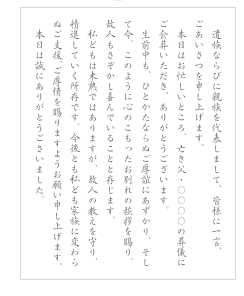 遺族ならびに親族を代表しまして、皆様に一言、
ごあいさつを申し上げます。
本日はお忙しいところ、亡き父・〇〇〇〇の葬儀に
ご会葬いただき、ありがとうございます。
生前中も、ひとかたならぬご厚誼にあずかり、そし
て今、このように心のこもったお別れの挨拶を賜り、
故人もさぞかし喜んでいることと存じます。
私どもは未熟ではありますが、故人の教えを守り、
精進していく所存です。今後とも私ども家族に変わら
ぬご支援、ご厚情を賜りますようお願い申し上げます。
本日は誠にありがとうございました。